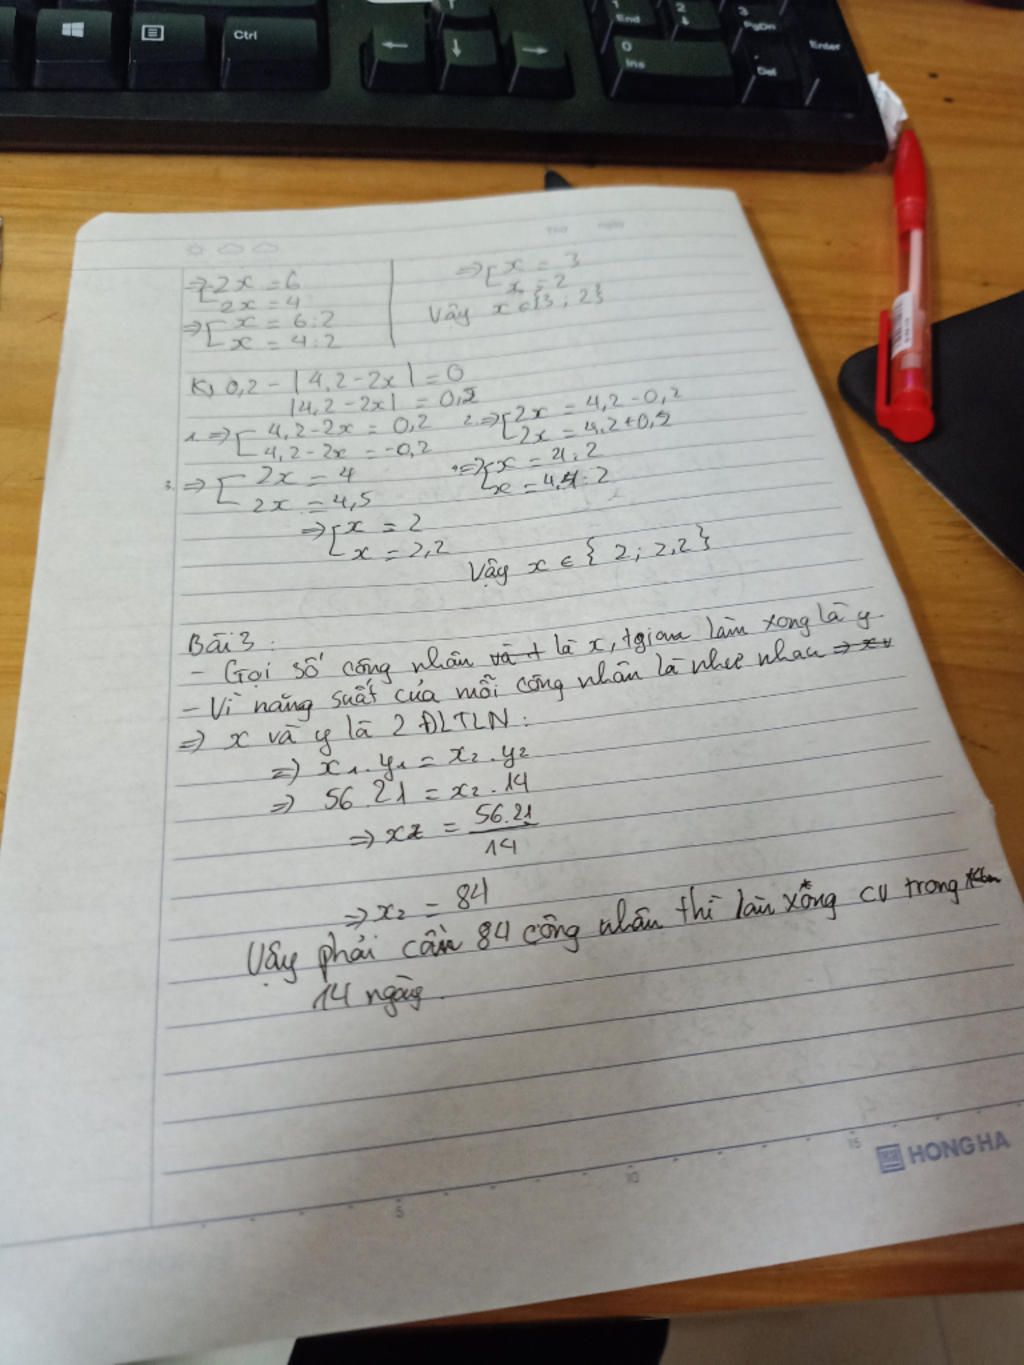 Ctrl
1
End
2
3
PgDn
Enter
0
Ins
Del
⇒[2x = 6
2x = 4
⇒[x = 6:2
x = 4:2
⇒[x = 3
x = 2
Vậy x ∈ {3; 2}
K) 0,2 - |4,2 - 2x| = 0
|4,2 - 2x| = 0,2
1. ⇒[4,2 - 2x = 0,2
4,2 - 2x = -0,2
2. ⇒[2x = 4,2 - 0,2
2x = 4,2 + 0,2
3. ⇒[2x = 4
2x = 4,5
⇒[x = 4:2
x = 4,4:2
⇒[x = 2
x = 2,2
Vậy x ∈ {2; 2,2}
Bài 3:
- Gọi số công nhân và t là x, tgian làm xong là y
- Vì năng suất của mỗi công nhân là như nhau ⇒ x
⇒ x và y là 2 ĐLTLN:
⇒ x1.y1 = x2.y2
⇒ 56.21 = x2.14
⇒ x2 = 56.21
14
⇒ x2 = 84
Vậy phải cần 84 công nhân thì làm xong cv trong
14 ngày.
5
10
15
HONG HA